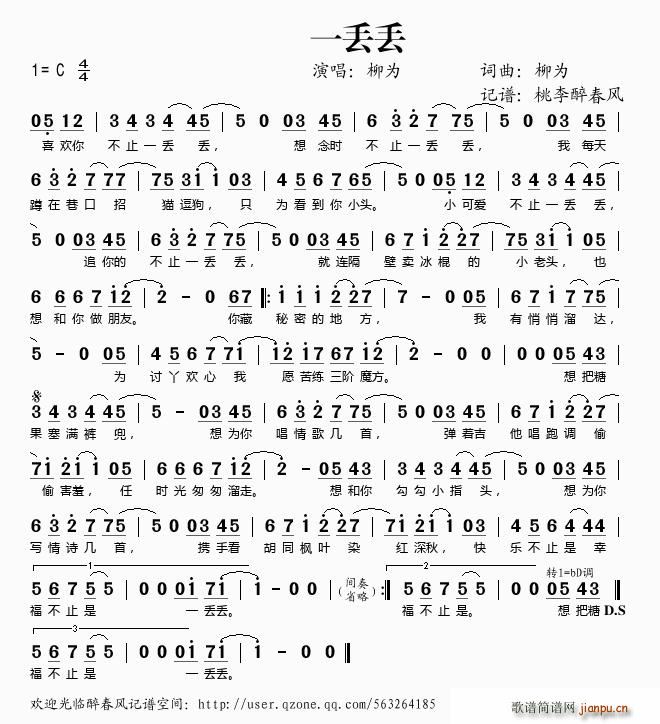 一丢丢
1= C 4/4 演唱：柳为 词曲：柳为
记谱：桃李醉春风
05 12 | 3 4 3 4 45 | 5 0 03 45 | 6 3 2 7 75 | 5 0 03 45 |
喜欢你 不止一丢 丢， 想 念时 不止一丢 丢， 我 每天
6 3 2 7 77 | 75 31 1 03 | 4 5 6 7 65 | 5 00 05 12 | 3 4 3 4 45 |
蹲在巷口 招 猫逗狗， 只 为看到你小头。 小可爱 不止一丢 丢，
5 0 03 45 | 6 3 2 7 75 | 5 0 03 45 | 6 7 1 2 27 | 75 31 1 03 |
追你的 不止一丢 丢， 就连隔 壁卖冰棍 的 小老头， 也
6 6 6 7 12 | 2 - 0 67 ‖: 1 1 1 2 27 | 7 - 0 05 | 6 7 1 7 75 |
想和你做朋友。 你藏 秘密的地 方， 我 有悄悄溜 达，
5 - 0 05 | 4 5 6 7 71 | 12 17 67 12 | 2 - 00 | 00 05 43 |
为 讨丫欢心 我 愿苦练三阶魔方。 想把糖
3 4 3 4 45 | 5 - 03 45 | 6 3 2 7 75 | 5 00 03 45 | 6 7 1 2 27 |
果塞满裤 兜， 想为你 唱情歌几 首， 弹着吉 他唱跑调 偷
71 21 1 05 | 6 6 6 7 12 | 2 - 03 43 | 3 4 3 4 45 | 5 - 03 45 |
偷害羞， 任 时光匆匆溜走。 想和你 勾勾小指 头， 想为你
6 3 2 7 75 | 5 00 03 45 | 6 7 1 2 27 | 71 21 1 03 | 4 5 6 4 56 |
写情诗几 首， 携手看 胡同枫叶 染 红深秋， 快 乐不止是 幸
1 2 转1=bD调
5 6 7 5 5 | 0 0 01 71 | 1 - 00 | (间奏省略) :‖ 5 6 7 5 5 | 00 05 43 ‖
福不止是 一丢丢。 福不止是。 想把糖 D.S
3
5 6 7 5 5 | 0 0 01 71 | 1 - 00 ‖
福不止是 一丢丢。
欢迎光临醉春风记谱空间：http://user.qzone.qq.com/563264185
歌谱简谱网 jianpu.cn